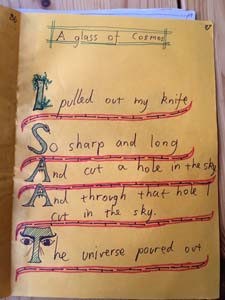 A glass of Cosmos
I pulled out my knife
So sharp and long
And cut a hole in the sky
And through that hole I
cut in the sky.
The universe poured out